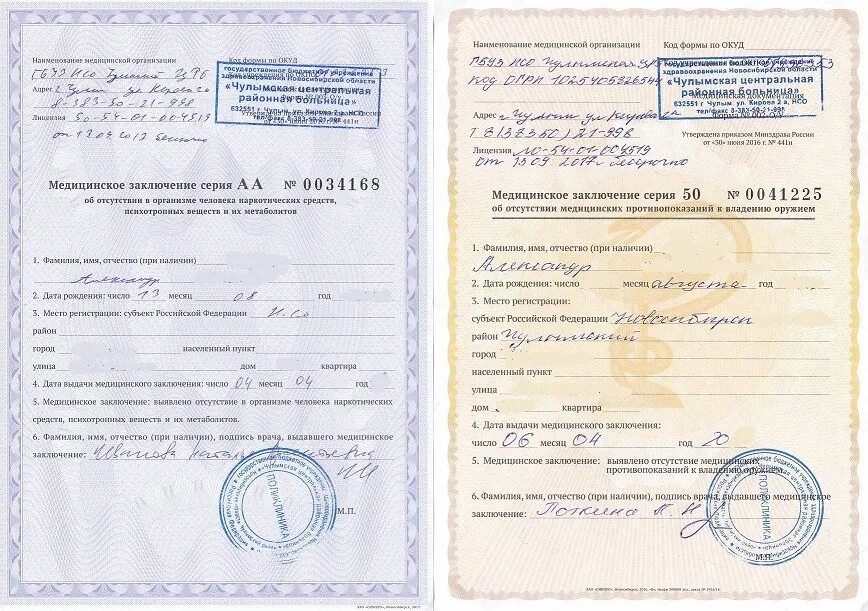 Наименование медицинской организации
Код формы по ОКУД
государственное бюджетное учреждение
здравоохранения Новосибирской области
«Чулымская центральная
районная больница»
632551 г. Чулым, ул. Кирова 2 а, НСО
тел/факс 8-383-50-21-998
Адрес
8-383-50-21-998
Лицензия 50-54-01-004519
Утверждена приказом Минздрава России
от «30» июня 2016 г. № 441н
Медицинское заключение серия АА № 0034168
об отсутствии в организме человека наркотических средств,
психотропных веществ и их метаболитов
1. Фамилия, имя, отчество (при наличии)
Александр
2. Дата рождения: число 13 месяц 08 год
3. Место регистрации: субъект Российской Федерации Н.со
район
город населенный пункт
улица дом квартира
4. Дата выдачи медицинского заключения: число 04 месяц 04 год
5. Медицинское заключение: выявлено отсутствие в организме человека наркотических
средств, психотропных веществ и их метаболитов.
6. Фамилия, имя, отчество (при наличии), подпись врача, выдавшего медицинское
заключение: Иванова Наталья
ПОЛИКЛИНИКА
М.П.
Наименование медицинской организации
Код формы по ОКУД
ГБУЗ НСО Чулымская ЦРБ
Код ОГРН 1025405826544
государственное бюджетное учреждение
здравоохранения Новосибирской области
«Чулымская центральная
районная больница»
632551 г. Чулым, ул. Кирова 2 а, НСО
тел/факс 8-383-50-21-998
Медицинская документация
Адрес г. Чулым ул Кирова 2а
Т 8(38350)21-998
Утверждена приказом Минздрава России
от «30» июня 2016 г. № 441н
Лицензия ЛО-54-01-004519
от 13 09 2017 г бессрочно
Медицинское заключение серия 50 № 0041225
об отсутствии медицинских противопоказаний к владению оружием
1. Фамилия, имя, отчество (при наличии)
Александр
2. Дата рождения: число месяц августа год
3. Место регистрации:
субъект Российской Федерации Новосибирск
район Чулымский
город
населенный пункт
улица
дом квартира
4. Дата выдачи медицинского заключения:
число 06 месяц 04 год 20
5. Медицинское заключение: выявлено отсутствие медицинских
противопоказаний к владению оружием.
6. Фамилия, имя, отчество (при наличии), подпись врача, выдавшего медицинское
заключение:
ПОЛИКЛИНИКА
М.П.